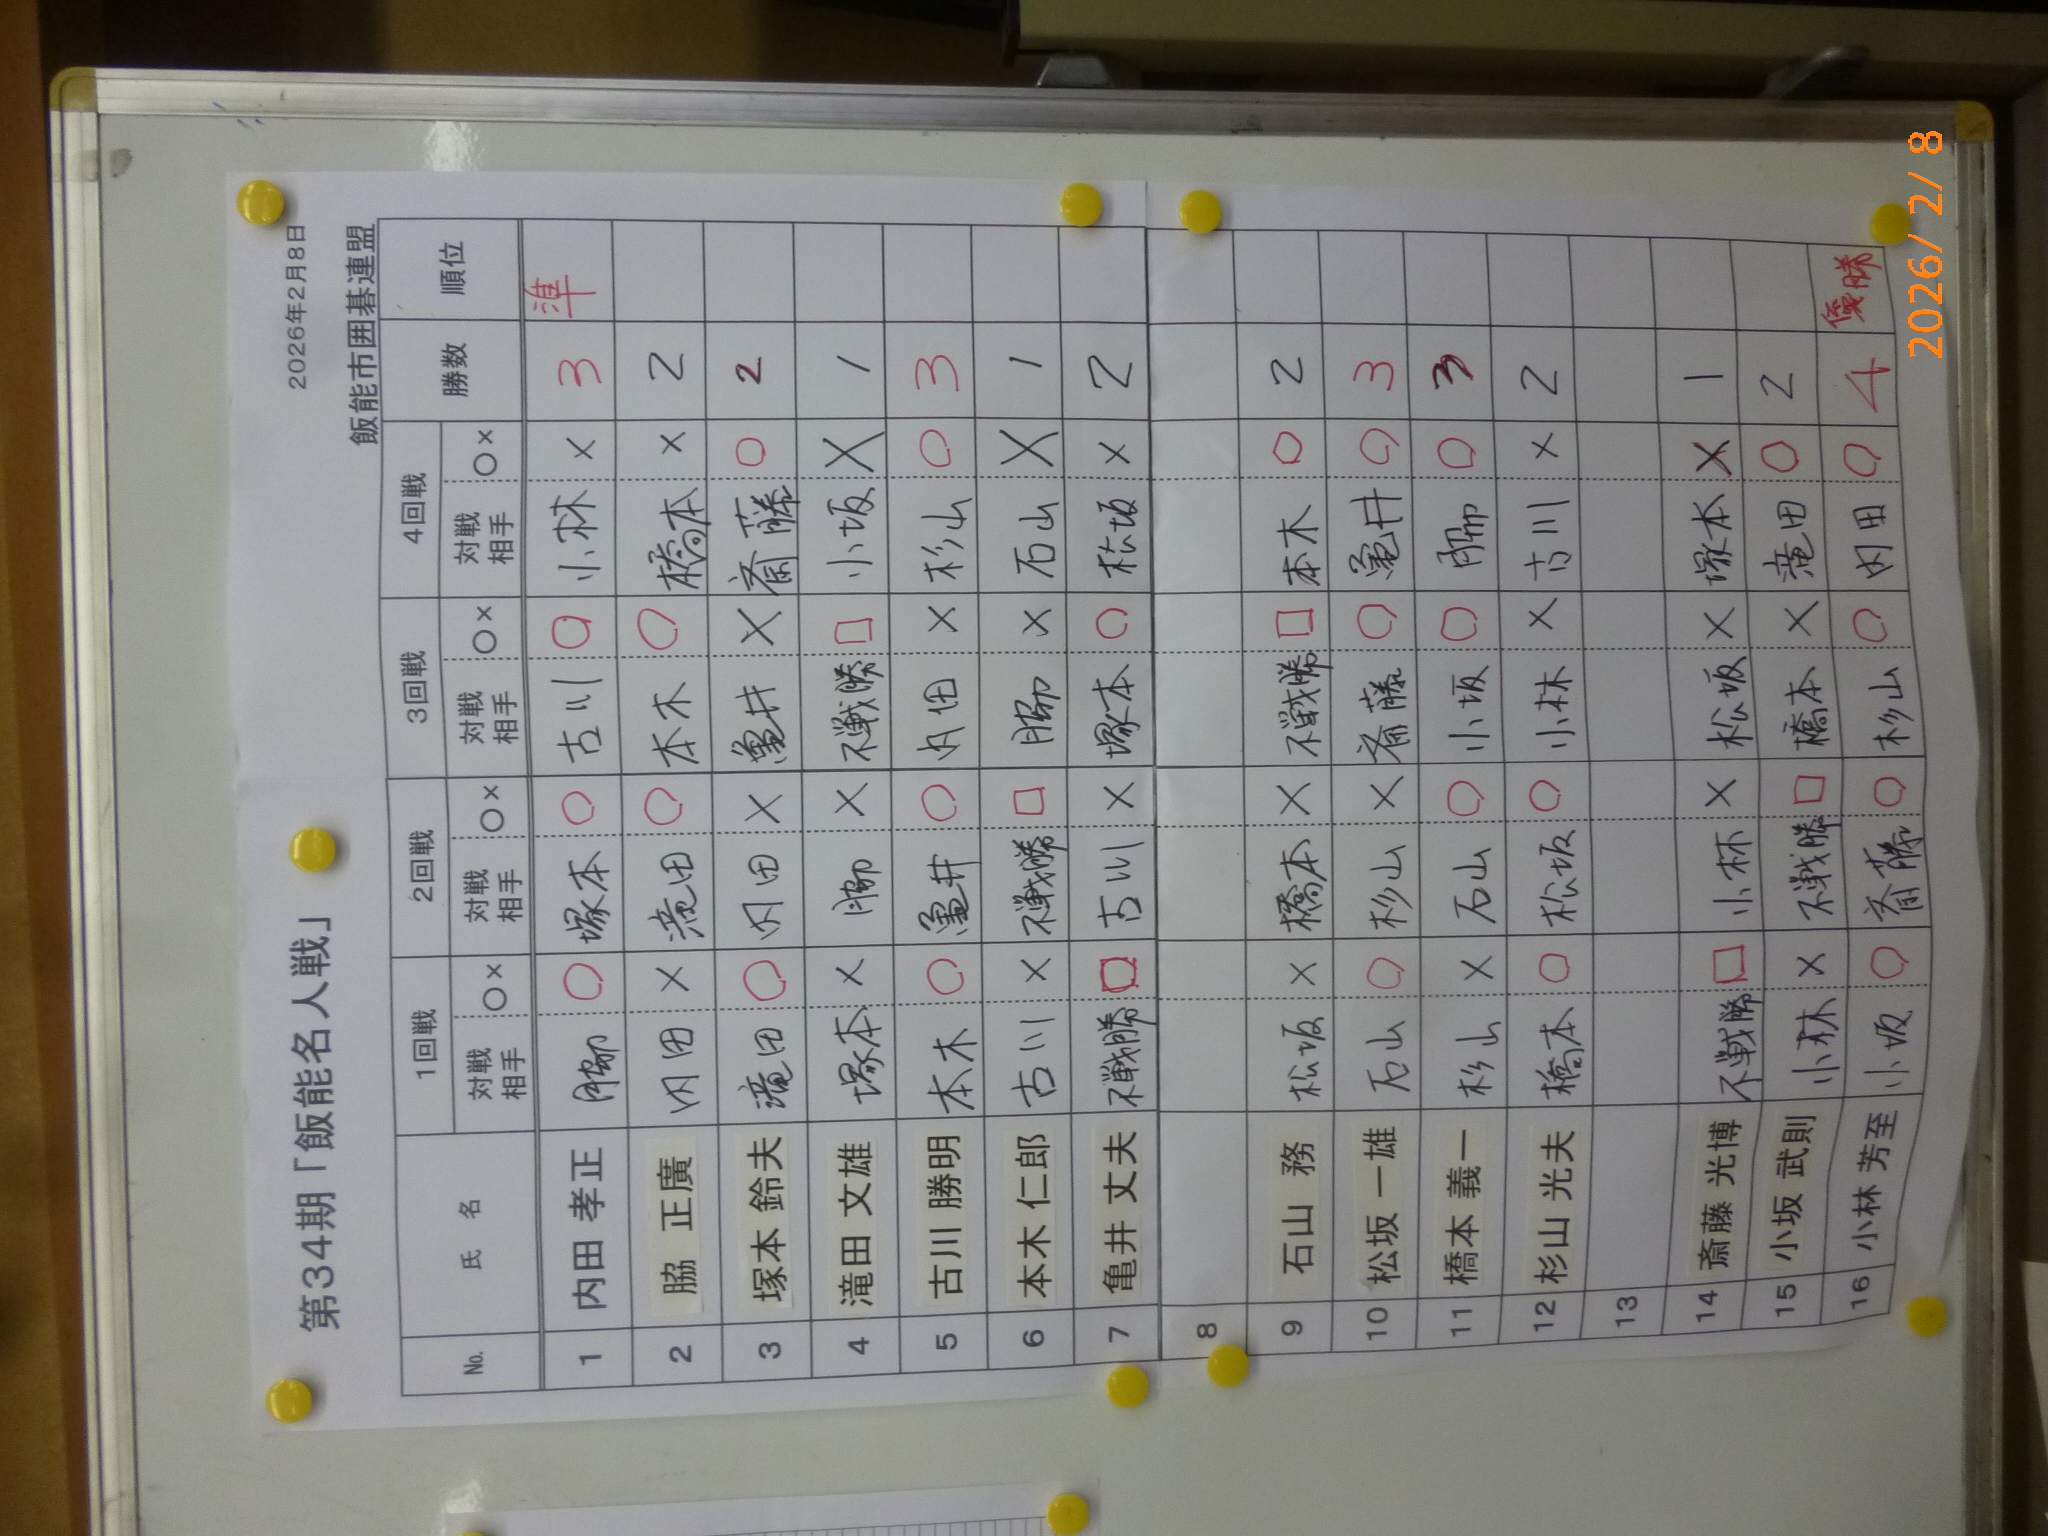 2026年2月8日
第34期「飯能名人戦」
飯能市囲碁連盟
No. 氏名 1回戦 2回戦 3回戦 4回戦 勝数 順位
対戦相手 ○× 対戦相手 ○× 対戦相手 ○× 対戦相手 ○×
1 内田 孝正 脇 ○ 塚本 ○ 古川 ○ 小林 × 3 準
2 脇 正廣 内田 × 滝田 ○ 本木 ○ 橋本 × 2
3 塚本 鈴夫 滝田 ○ 内田 × 亀井 × 斎藤 ○ 2
4 滝田 文雄 塚本 × 脇 × 不戦勝 □ 小坂 × 1
5 古川 勝明 本木 ○ 亀井 ○ 内田 × 杉山 ○ 3
6 本木 仁郎 古川 × 不戦勝 □ 脇 × 石山 × 1
7 亀井 丈夫 不戦勝 □ 古川 × 塚本 ○ 松坂 × 2
8
9 石山 務 松坂 × 橋本 × 不戦勝 □ 本木 ○ 2
10 松坂 一雄 石山 ○ 杉山 × 斎藤 ○ 亀井 ○ 3
11 橋本 義一 杉山 × 石山 ○ 小坂 ○ 脇 ○ 3
12 杉山 光夫 橋本 ○ 松坂 ○ 小林 × 古川 × 2
13
14 斎藤 光博 不戦勝 □ 小林 × 松坂 × 塚本 × 1
15 小坂 武則 小林 × 不戦勝 □ 橋本 × 滝田 ○ 2
16 小林 芳至 小坂 ○ 斎藤 ○ 杉山 ○ 内田 ○ 4 優勝
2026/ 2/ 8